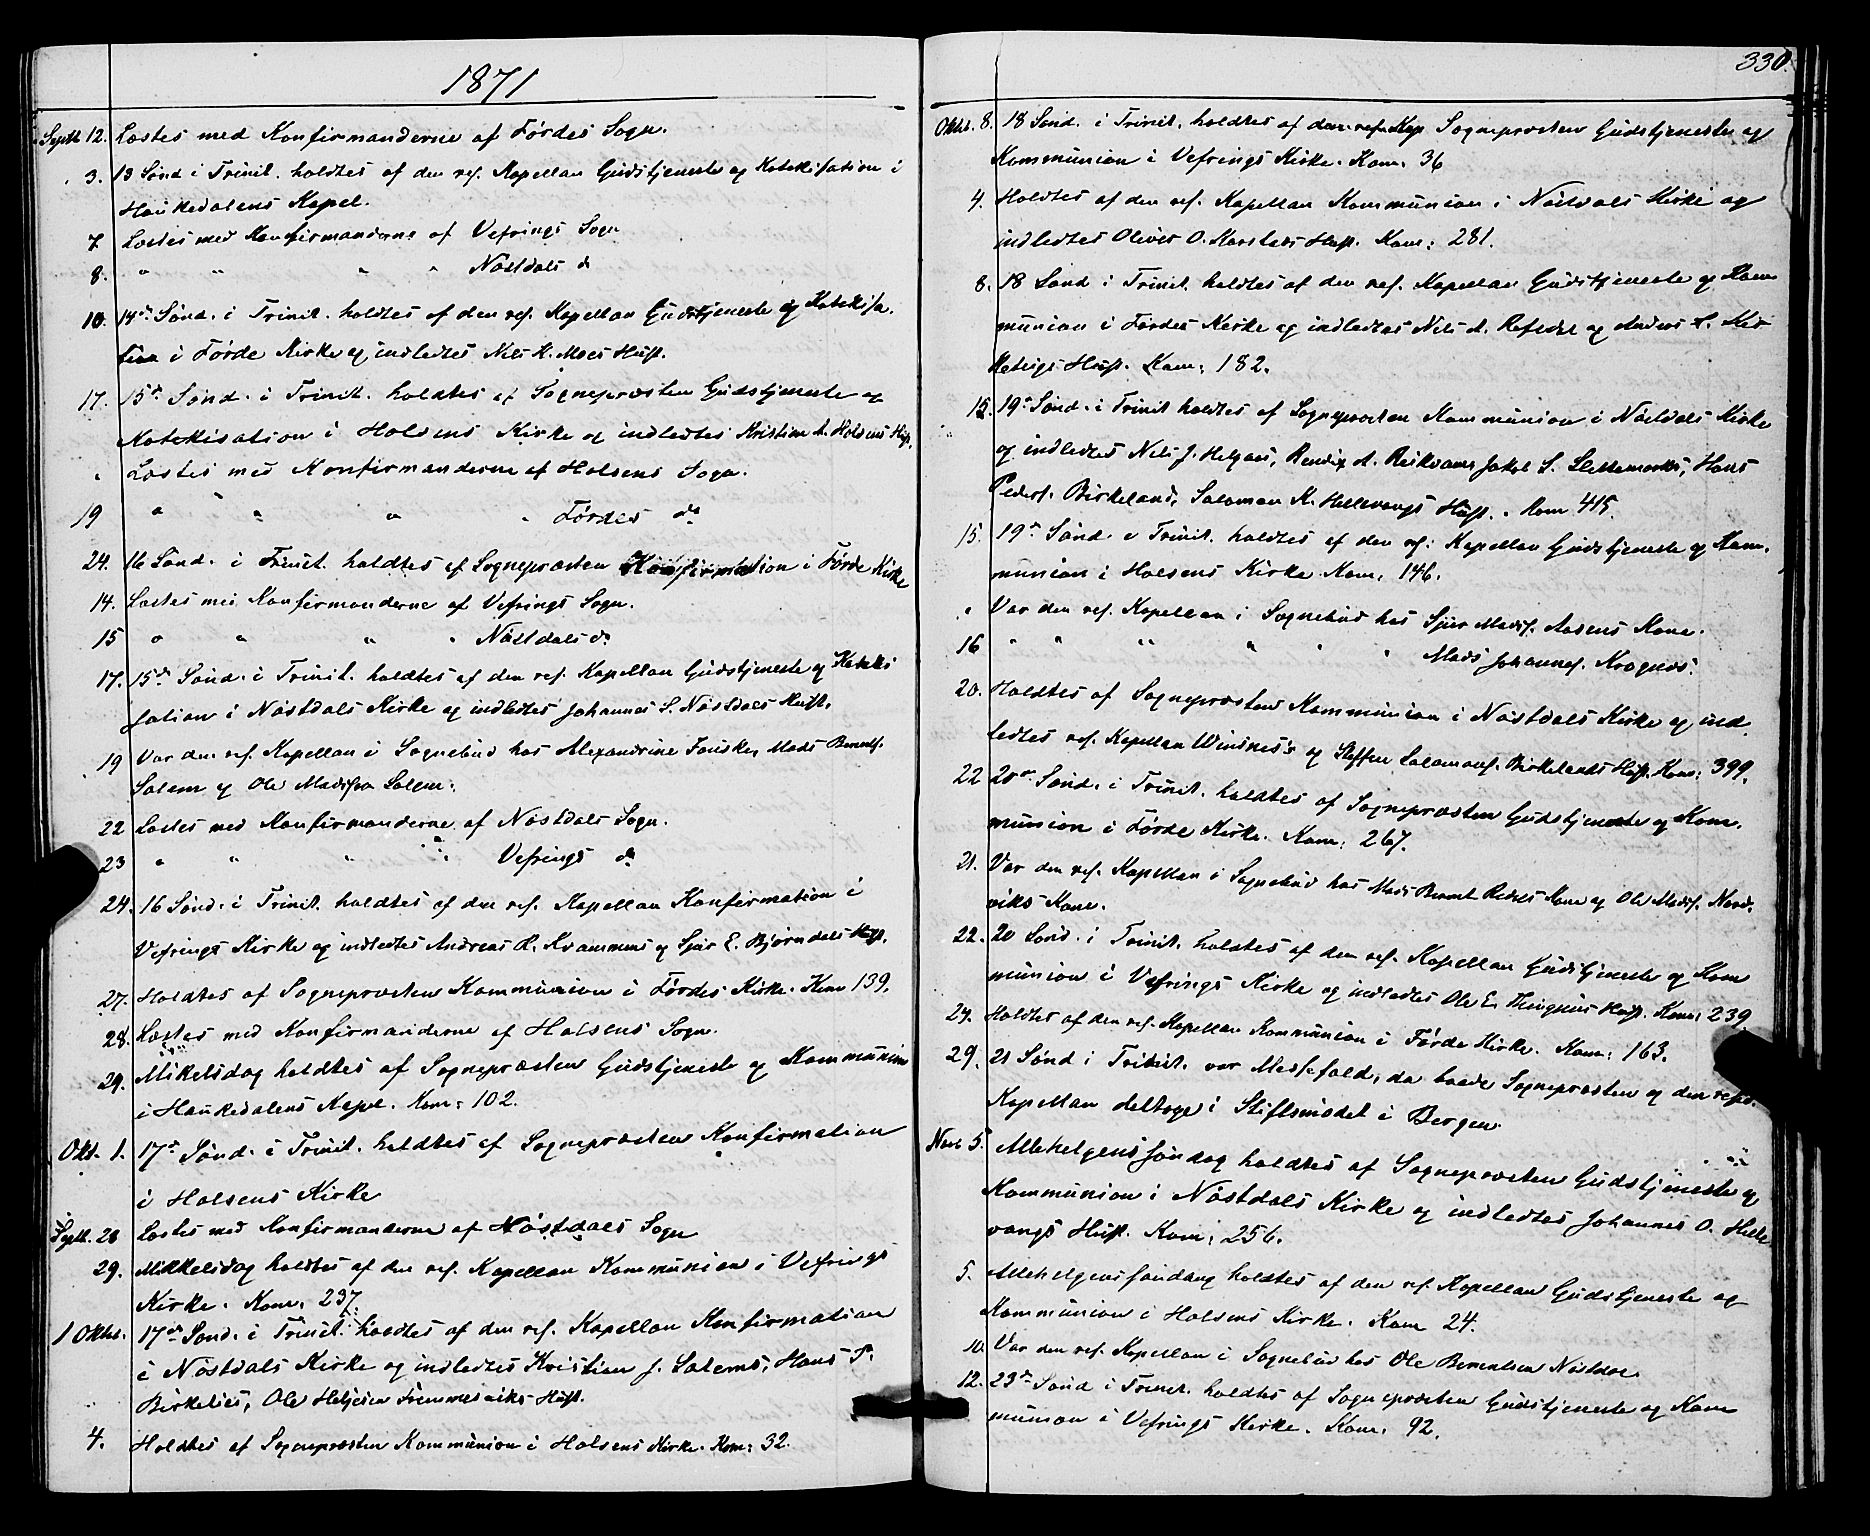 1871
Septb 12. Læstes med Konfirmanderne af Førdes Sogn.
3. 13 Sønd i Trinit. holdtes af den res. Kapellan Gudstjeneste og Katekisation i
Haukedalens Kapel.
7 Læstes med Konfirmanderne af Vefrings Sogn
8. " " " " Nøstdals do
10. 14de Sønd. i Trinit. holdtes af den res. Kapellan Gudstjeneste og Katekisa-
tion i Førde Kirke og indledtes Nils K. Moes Hust.
17. 15de Sønd. i Trinit. holdtes af Sognepræsten Gudstjeneste og
Katekisation i Holsens Kirke og indledtes Kristian A. Holsens Hust.
" Læstes med Konfirmanderne af Holsens Sogn.
19 " " " " Førdes do
24. 16 Sønd. i Trinit. holdtes af Sognepræsten Konfirmation i Førde Kirke
14. Læstes med Konfirmanderne af Vefrings Sogn.
15 " " " " Nøstdals do
17. 15de Sønd. i Trinit. holdtes af den res. Kapellan Gudstjeneste og Kateki
sation i Nøstdals Kirke og indledtes Johannes S. Nøstdals Hust.
19 Var den res. Kapellan i Sognebud hos Alexandrine Fauske, Mads Berents.
Solem og Ole Madsen Solem.
22 Læstes med Konfirmanderne af Nøstdals Sogn.
23 " " " " Vefrings do
24. 16 Sønd. i Trinit. holdtes af den res. Kapellan Konfirmation i
Vefrings Kirke og indledtes Andreas R. Kvammens og Sjur E. Bjørndals Hust.
27. Holdtes af Sognepræsten Kommunion i Førdes Kirke. Kom 139.
28. Læstes med Konfirmanderne af Holsens Sogn.
29. Mikelsdag holdtes af Sognepræsten Gudstjeneste og Kommunion
i Haukedalens Kapel. Kom: 102.
Okt. 1. 17de Sønd. i Trinit. holdtes af Sognepræsten Konfirmation
i Holsens Kirke
Septb. 28 Læstes med Konfirmanderne af Nøstdals Sogn
29. Mikkelsdag holdtes af den res. Kapellan Kommunion i Vefrings
Kirke. Kom. 237.
1 Oktbr. 17de Sønd. i Trinit. holdtes af den res. Kapellan Konfirmation
i Nøstdals Kirke og indledtes Kristian J. Solems, Hans P.
Birkelies, Ole Hust.
4. Holdtes af Sognepræsten Kommunion i Holsens Kirke. Kom: 32.
330.
Oktbr. 8. 18 Sønd. i Trinit. holdtes af den res. Kap. Sognepræsten Gudstjeneste og
Kommunion i Vefrings Kirke. Kom. 36
4. Holdtes af den res. Kapellan Kommunion i Nøstdals Kirke og
indledtes Oliver O. Hust. Kom: 281.
8. 18 Sønd i Trinit. holdtes af den res. Kapellan Gudstjeneste og Kom
munion i Førdes Kirke og indledtes Nils A. og Anders
Hust. Kom: 182.
15. 19de Sønd. i Trinit holdtes af Sognepræsten Kommunion i Nøstdals Kirke
og indledtes Nils J. Helgaas, Bendix A. Reikvams, Jakob S. Slettemarks, Hans
Peders. Birkeland, Salomon K. Hellevangs Hust. Kom 415.
15. 19de Sønd. i Trinit. holdtes af den res. Kapellan Gudstjeneste og Kom.
munion i Holsens Kirke Kom. 146.
" Var den res. Kapellan i Sognebud hos Sjur Mads. Aasens Kone.
16 " " " " " " Mads Johannes.
20. Holdtes af Sognepræsten Kommunion i Nøstdals Kirke og ind
ledtes res. Kapellan Winsnes's og Steffen Salomons. Birkelands Hust. Kom: 399.
22 20de Sønd. i Trinit. holdtes af Sognepræsten Gudstjeneste og Kom.
munion i Førde Kirke. Kom: 267.
21. Var den res. Kapellan i Sognebud hos Mads Kone og Ole Mads. Nord-
viks Kone.
22. 20 Sønd. i Trinit. holdtes af den res. Kapellan Gudstjeneste og Kom
munion i Vefrings Kirke og indledtes Ole E. Hust. Kom: 239
27. Holdtes af den res. Kapellan Kommunion i Førde Kirke. Kom: 163.
29. 21 Sønd i Trinit. var Messefald, da baade Sognepræsten og den resd.
Kapellan deltoge i Stiftsmødet i Bergen.
Novb 5. Allehelgenssøndag holdtes af Sognepræsten Gudstjeneste og
Kommunion i Nøstdals Kirke og indledtes Johannes O. Helle
vangs Hust. Kom: 256.
5. Allehelgenssøndag holdtes af den res. Kapellan Gudstjeneste og
Kommunion i Holsens Kirke. Kom 24.
10. Var den res. Kapellan i Sognebud hos Ole Berentsen Nøstdal.
12. 23de Sønd i Trinit. holdtes af Sognepræsten Gudstjeneste og Kom
munion i Vefrings Kirke. Kom. 92.